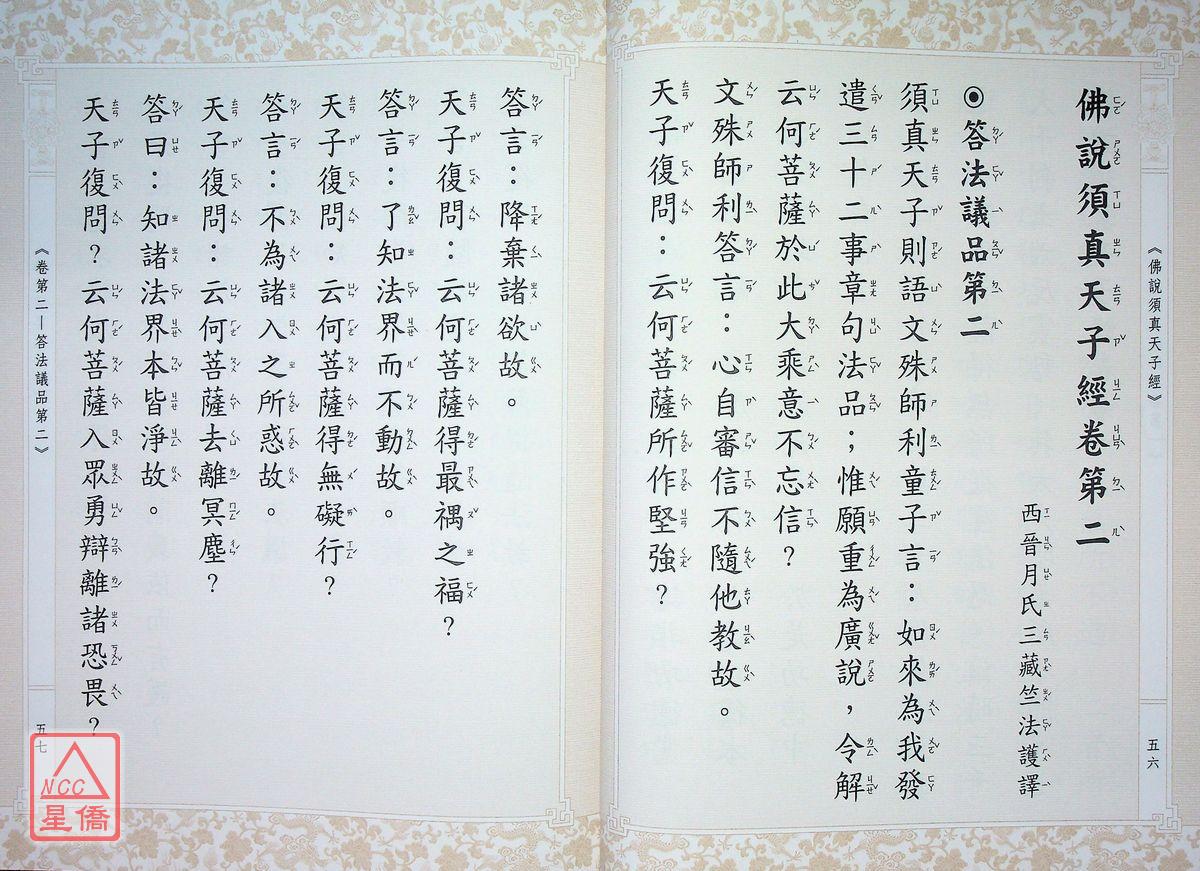 《佛說須真天子經》
五六
佛說須真天子經卷第二
西晉月氏三藏竺法護譯
◉答法議品第二
須真天子則語文殊師利童子言：如來為我發
遣三十二事章句法品；惟願重為廣說，令解
云何菩薩於此大乘意不忘信？
文殊師利答言：心自審信不隨他教故。
天子復問：云何菩薩所作堅強？
答言：降棄諸欲故。
天子復問：云何菩薩得最禑之福？
答言：了知法界而不動故。
天子復問：云何菩薩得無礙行？
答言：不為諸入之所惑故。
天子復問：云何菩薩去離冥塵？
答曰：知諸法界本皆淨故。
天子復問？云何菩薩入眾勇辯離諸恐畏？
《卷第二—答法議品第二》
五七
NCC
星僑